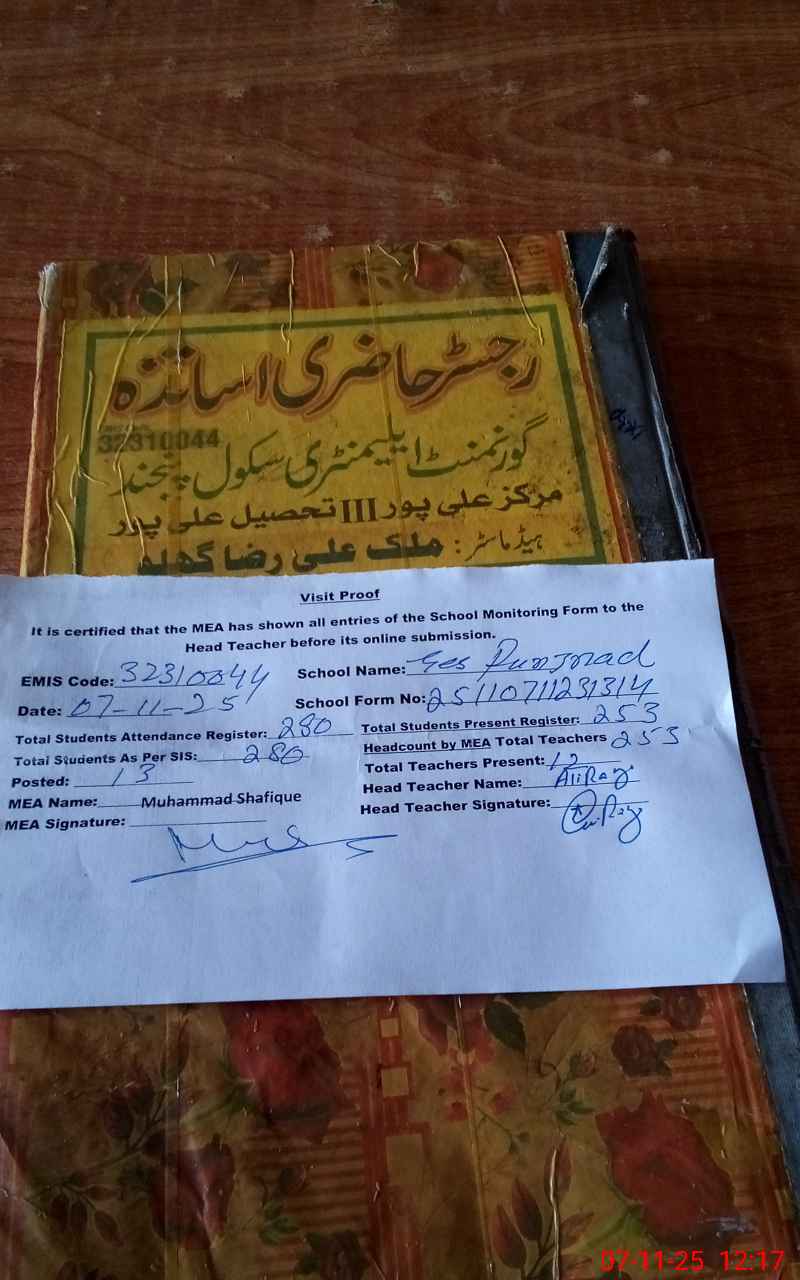 رجسٹر حاضری اساتذہ
32310044
گورنمنٹ ایلیمنٹری سکول پنجند
مرکز علی پور III تحصیل علی پور
ہیڈ ماسٹر: ملک علی رضا گھلو
Visit Proof
It is certified that the MEA has shown all entries of the School Monitoring Form to the
Head Teacher before its online submission.
EMIS Code: 32310044 School Name: Ges Punjnad
Date: 07-11-25 School Form No: 25110711231314
Total Students Attendance Register: 280 Total Students Present Register: 253
Total Students As Per SIS: 280 Headcount by MEA Total Teachers 253
Posted: 13 Total Teachers Present: 12
MEA Name: Muhammad Shafique Head Teacher Name: Ali Raza
MEA Signature: Head Teacher Signature:
07-11-25 12:17